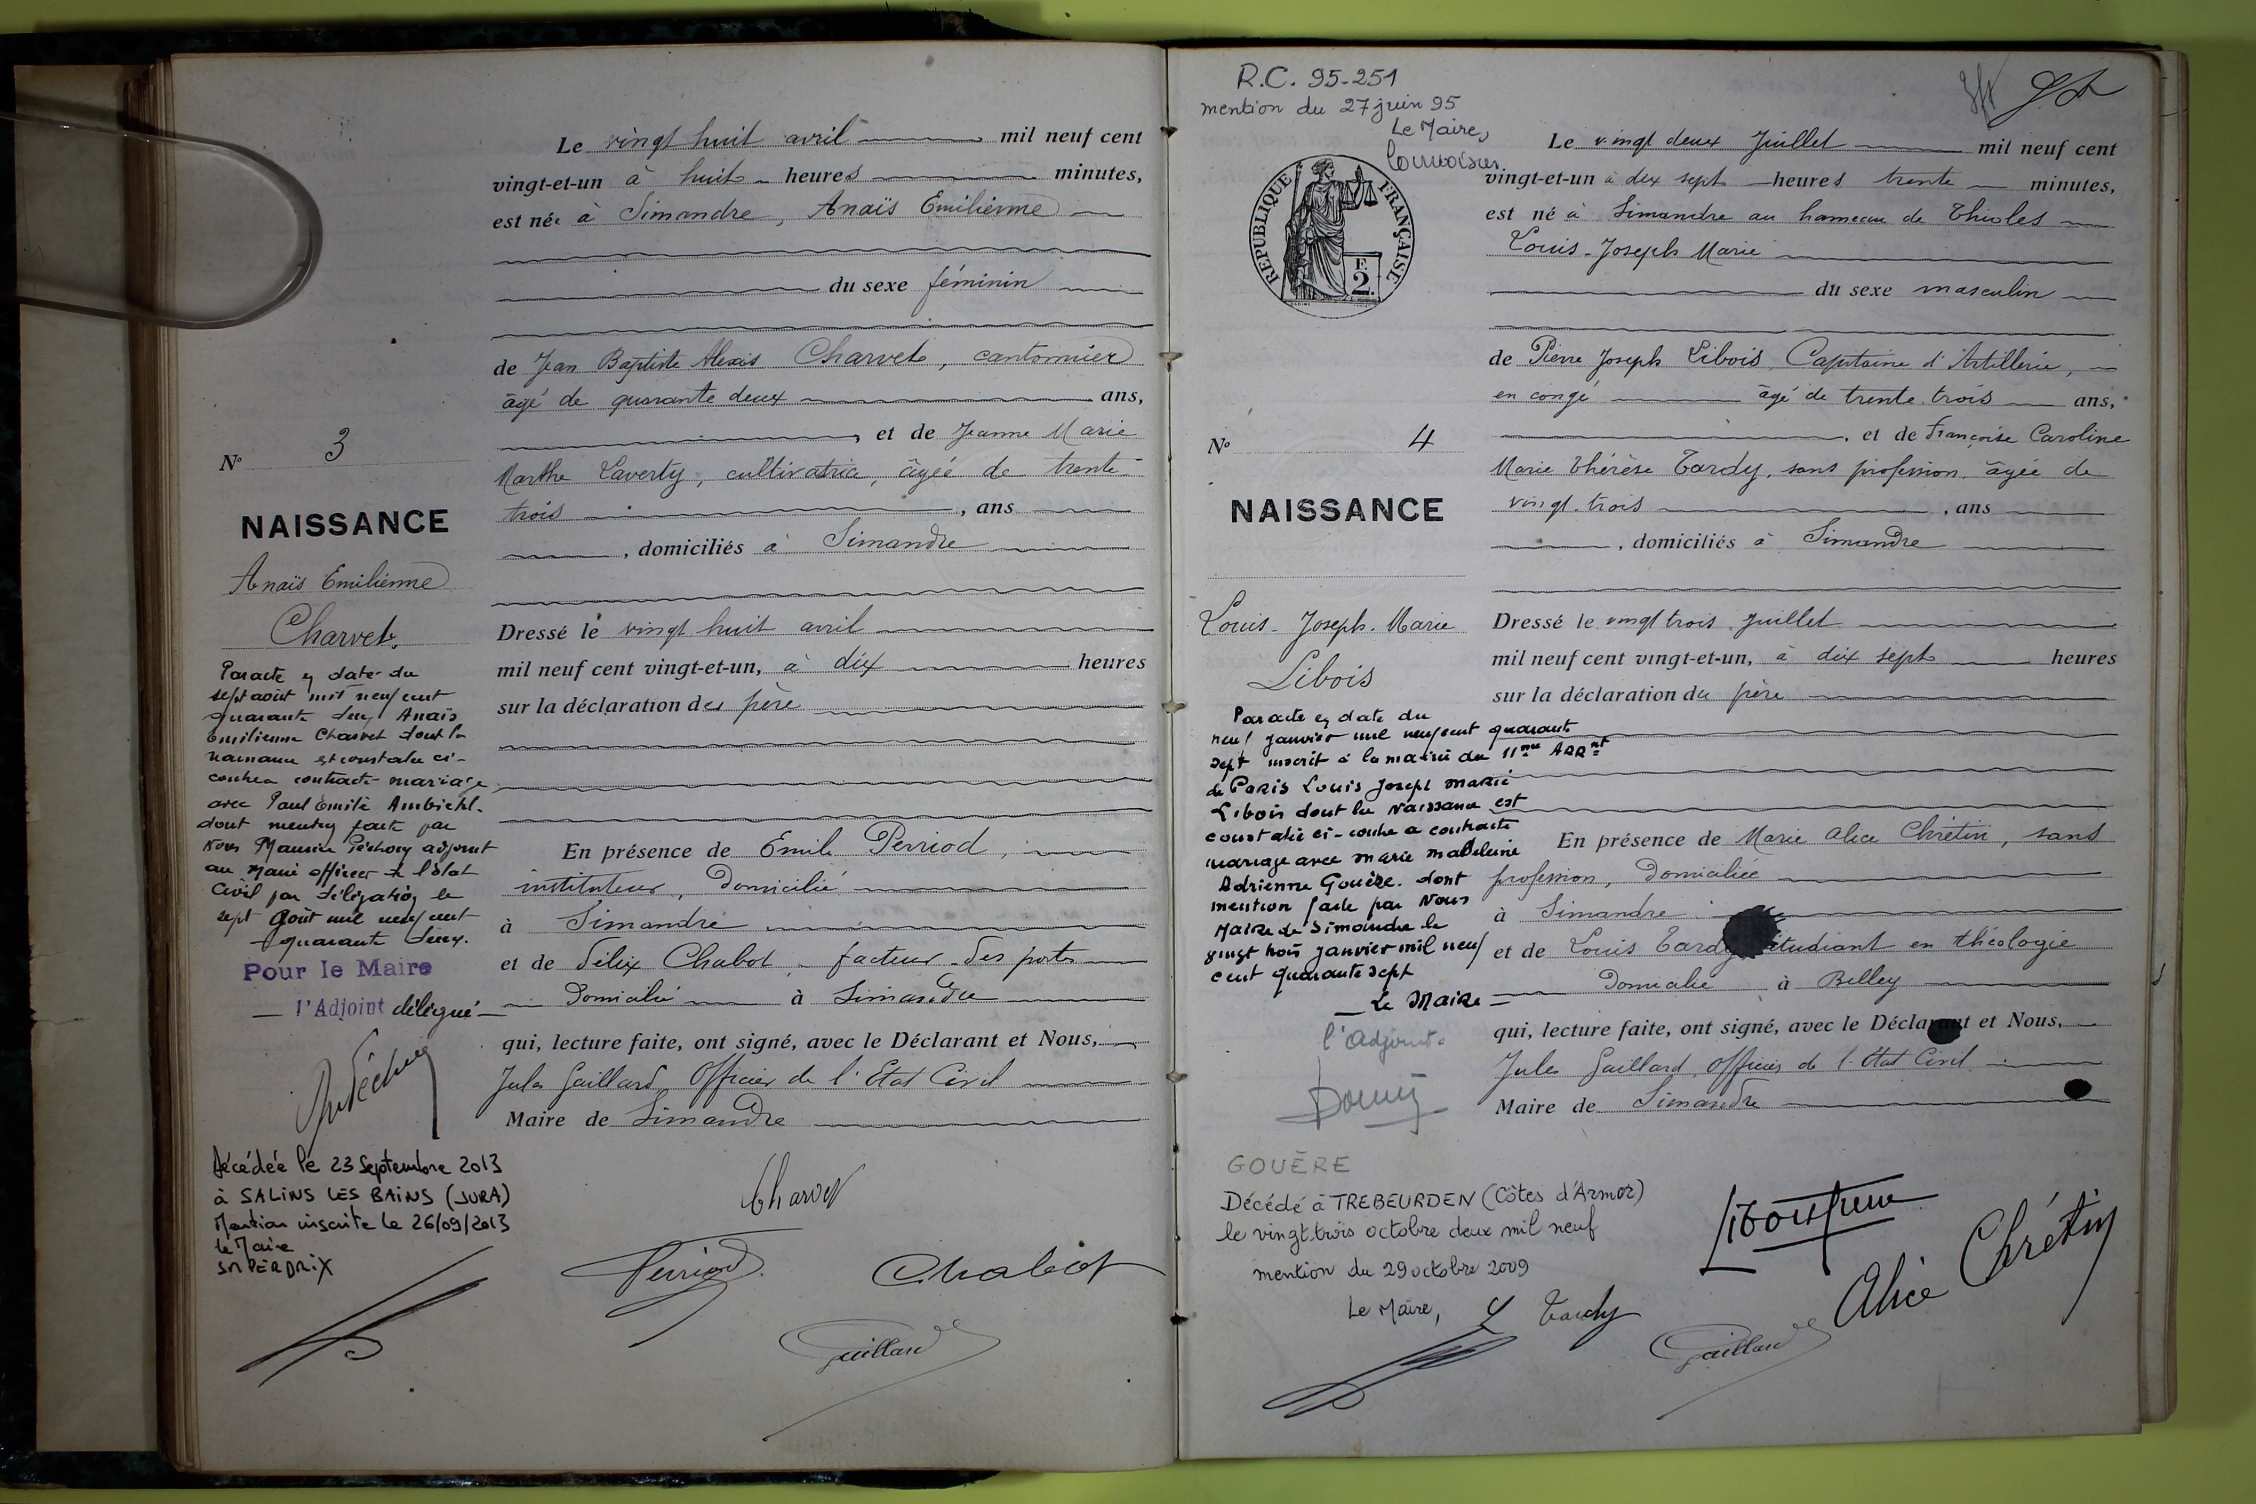 Le vingt huit avril mil neuf cent
vingt-et-un à huit heures minutes,
est née à Simandre, Anaïs Emilienne
du sexe féminin
de Jean Baptiste Alexis Charvet, cantonnier
âgé de quarante deux ans,
, et de Jeanne Marie
Marthe Laverty, cultivatrice, âgée de trente
trois , ans
, domiciliés à Simandre
Dressé le vingt huit avril
mil neuf cent vingt-et-un, à dix heures
sur la déclaration du père
En présence de Emile Perriod,
instituteur, domicilié
à Simandre
et de Félix Chabot, facteur des postes
domicilié à Simandre
qui, lecture faite, ont signé, avec le Déclarant et Nous,
Jules Gaillard Officier de l'Etat Civil
Maire de Simandre
Charvet
Perriod
Chabot
Gaillard
No 3
NAISSANCE
Anaïs Emilienne
Charvet.
Par acte en date du
sept août mil neuf cent
quarante deux Anaïs
Emilienne Charvet dont la
naissance est constatée ci-
contre a contracté mariage
avec Paul Emile Ambiehl.
dont mention faite par
Nous Maurice Péchoux adjoint
au Maire officier de l'état
civil par délégation le
sept Août mil neuf cent
quarante deux.
Pour le Maire
l'Adjoint délégué
Décédée le 23 Septembre 2013
à SALINS LES BAINS (JURA)
Mention inscrite le 26/09/2013
le Maire
SM PERDRIX
R.C. 95-251
mention du 27 juin 95
Le Maire,
REPUBLIQUE FRANÇAISE
F.
2.
Le vingt deux Juillet mil neuf cent
vingt-et-un à dix sept heures trente minutes,
est né à Simandre au hameau de Thioles
Louis-Joseph Marie
du sexe masculin
de Pierre Joseph Libois, Capitaine d'Artillerie,
en congé âgé de trente trois ans,
, et de Françoise Caroline
Marie Thérèse Tardy, sans profession, âgée de
vingt-trois , ans
, domiciliés à Simandre
Dressé le vingt trois Juillet
mil neuf cent vingt-et-un, à dix sept heures
sur la déclaration du père
En présence de Marie Alice Chrétin, sans
profession, domiciliée
à Simandre
et de Louis Tardy étudiant en théologie
domicilié à Belley
qui, lecture faite, ont signé, avec le Déclarant et Nous,
Jules Gaillard, Officier de l'Etat Civil
Maire de Simandre
Alice Chrétin
L Tardy
Gaillard
No 4
NAISSANCE
Louis-Joseph-Marie
Libois
Par acte en date du
neuf janvier mil neuf cent quarante
sept inscrit à la mairie du 11me ARRnt
de Paris Louis Joseph Marie
Libois dont la naissance est
constatée ci-contre a contracté
mariage avec Marie Madeleine
Adrienne Gouère. dont
mention faite par Nous
Maire de Simandre le
vingt trois janvier mil neuf
cent quarante sept
Le Maire
l'Adjoint
GOUÈRE
Décédé à TREBEURDEN (Côtes d'Armor)
le vingt-trois octobre deux mil neuf
mention du 29 octobre 2009
Le Maire,